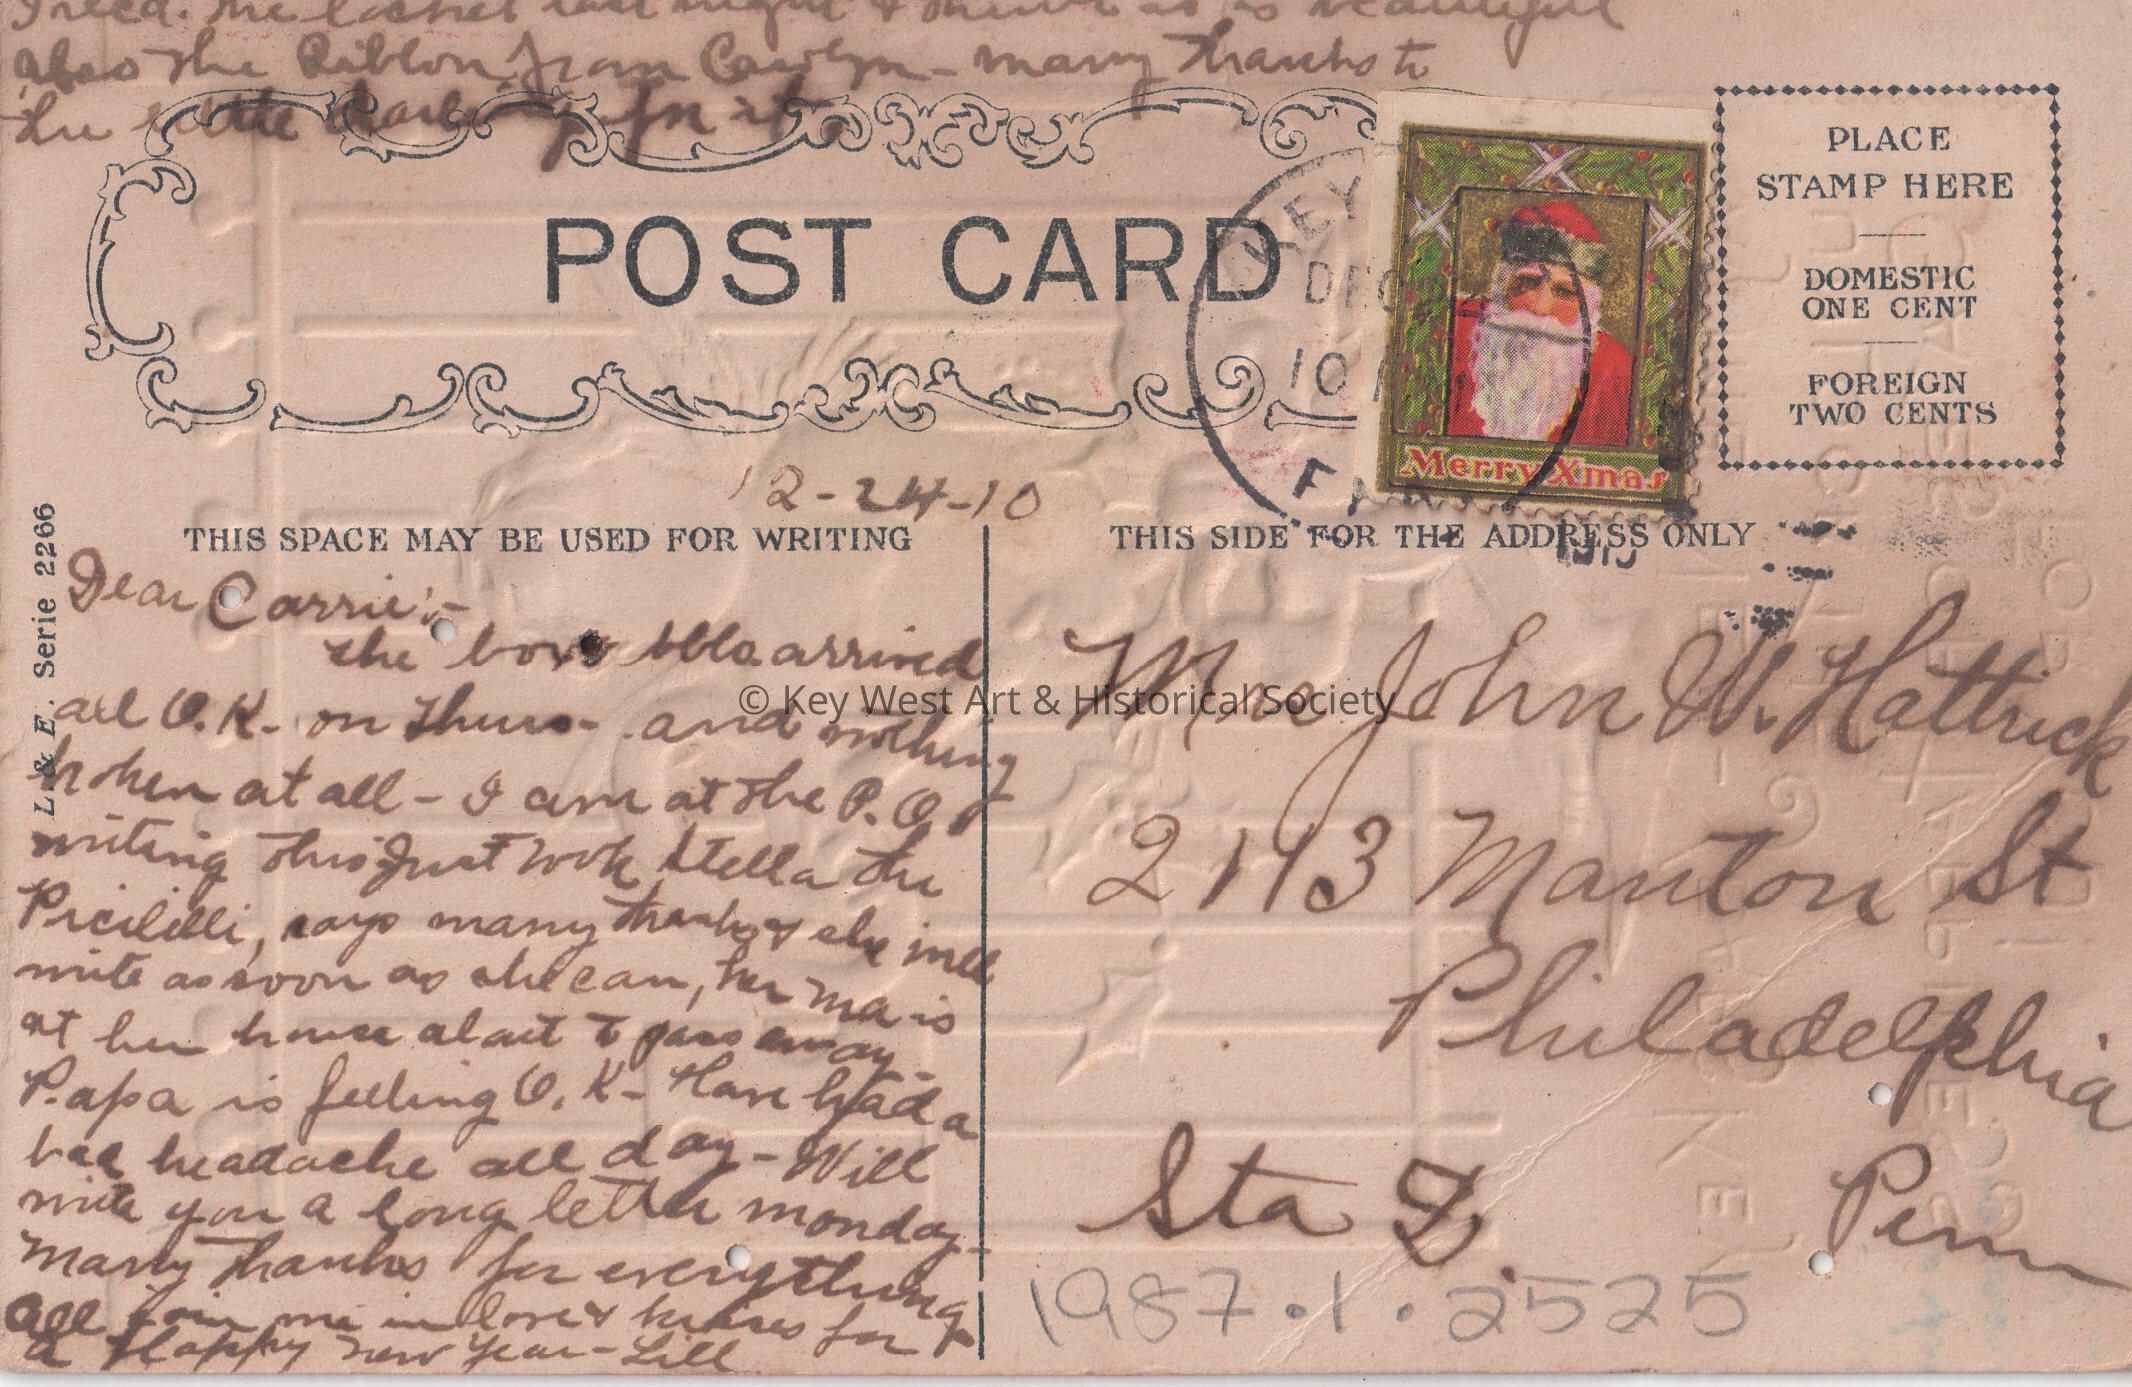 I rec'd. the last night & think it is beautiful
also the Ribbon from Carolyn - many thanks to
the little darling for it.
POST CARD
KEY
DEC
10
F
Merry Xmas
PLACE
STAMP HERE
DOMESTIC
ONE CENT
FOREIGN
TWO CENTS
12-24-10
THIS SPACE MAY BE USED FOR WRITING
THIS SIDE FOR THE ADDRESS ONLY
1910
L. & E. Serie 2266
Dear Carrie:-
the box & bbls. arrived
all O.K. on Thurs- and nothing
broken at all - I am at the P.O.
writing this Just took Stella the
Picilelli, says many thanks & she will
write as soon as she can, her ma is
at her house about to pass away -
Papa is feeling O.K - Have had a
bad headache all day - Will
write you a long letter monday -
Many thanks for everything
All join me in love & kisses for
a Happy New Year - Lill
Mrs John W. Hattrick
2143 Manton St
Philadelphia
Sta D.
Penn
© Key West Art & Historical Society
1987.1.2525